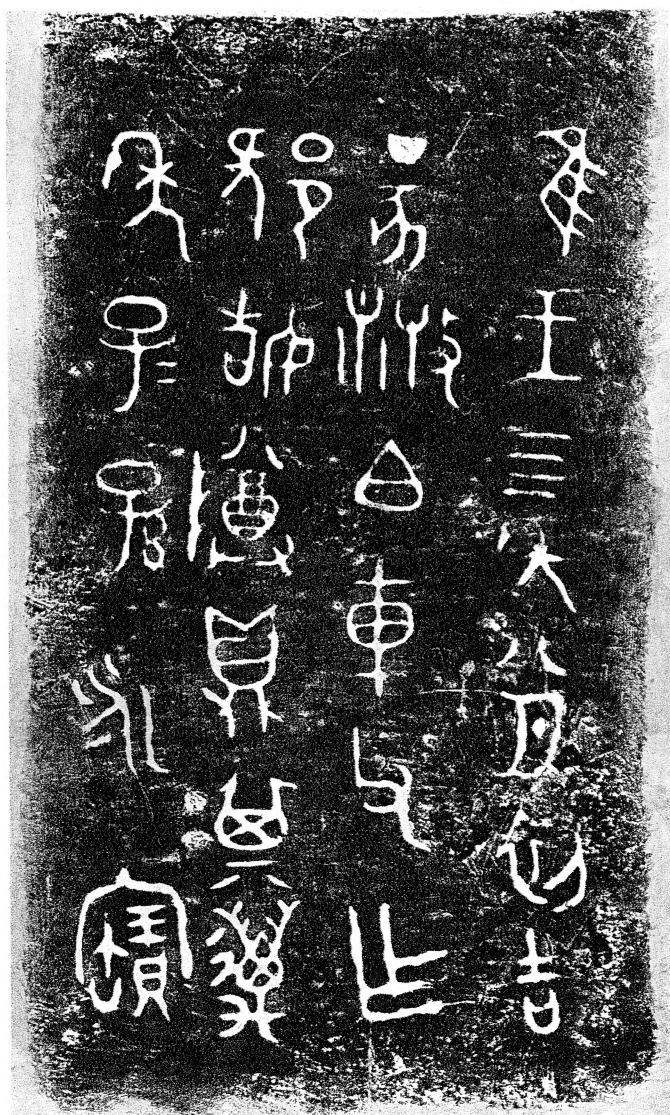 隹王亖年八月初吉
丁亥散白車父乍
邪姞尊鼎其萬
年子〓孫永寶